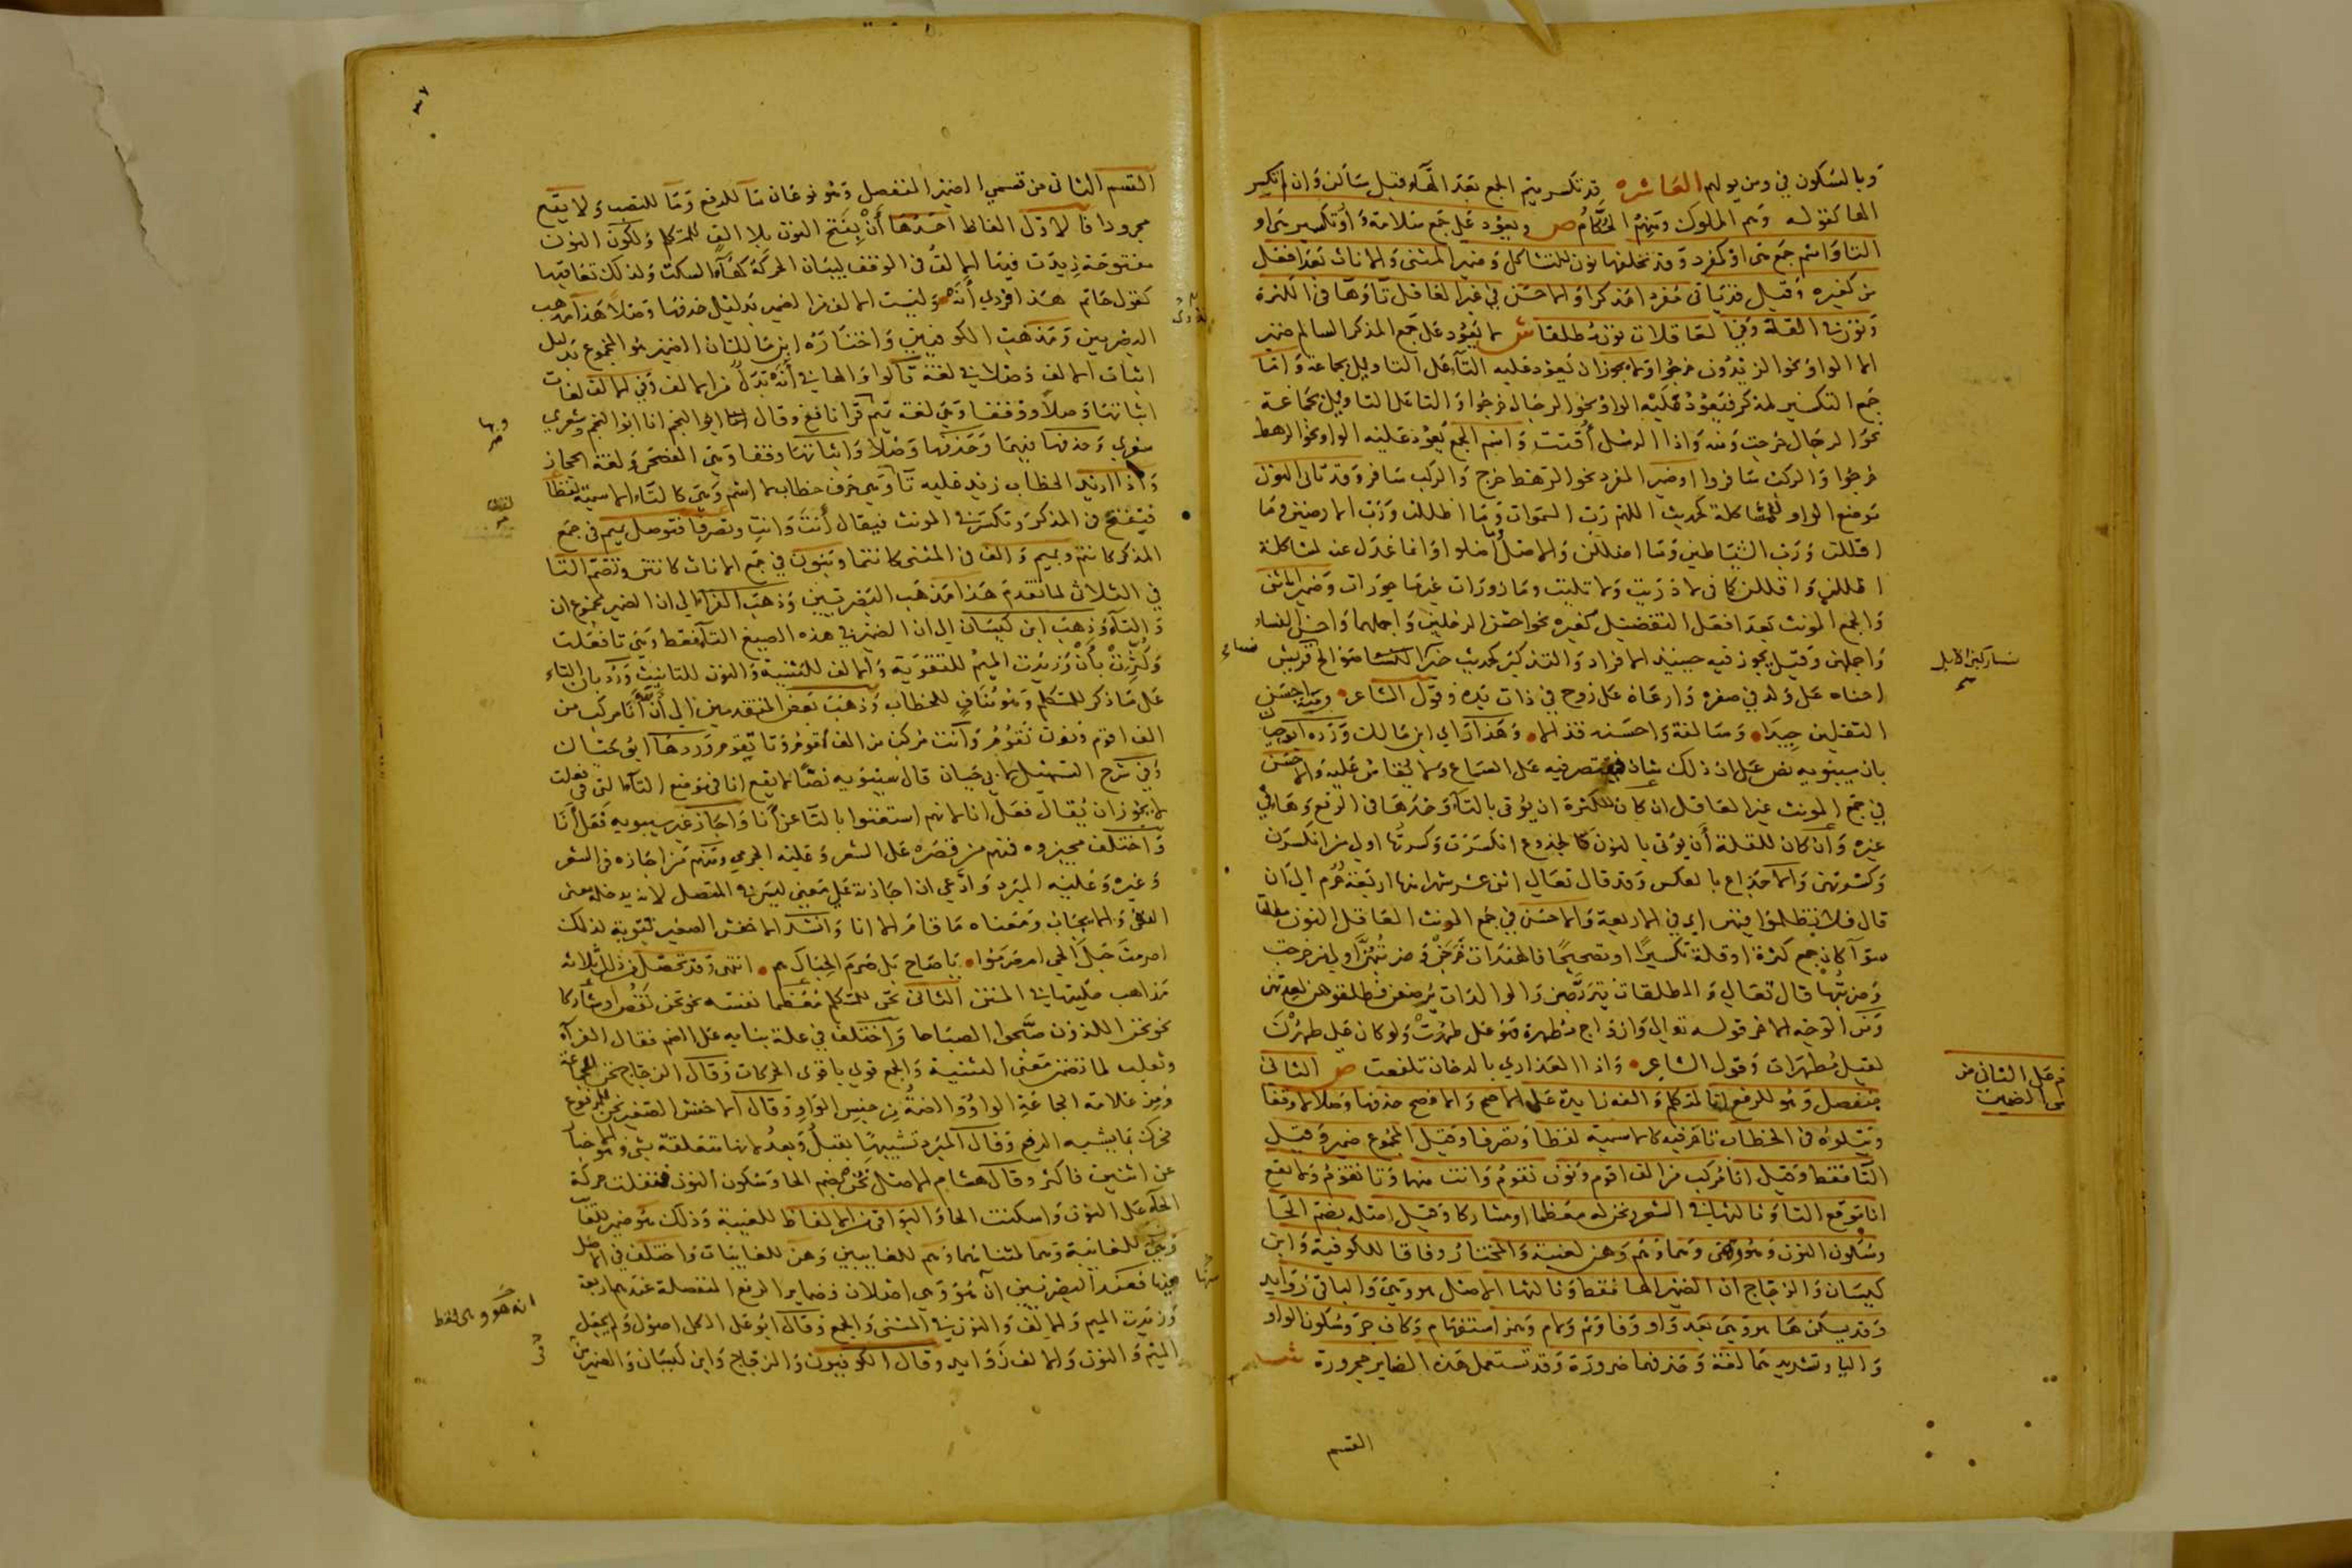 وبالسكون في ومن يولهم العاشره قد تكسر ميم الجمع بعد الهاء قبل ساكن وان لم تكسر
الها كقوله وهم الملوك ومنهم الحكام ص ويعود على جمع سلامة واو تكسير تي او
التا واسم جمع هي او كفرد وقد تخلفها نون للتشاكل وضمير المثنى والاناث بعد افعل
من كغيره وقيل قد ياتي مفردا مذكرا والاحسن في غير العاقل تا وها في الكثرة
ونون في القلة وفي العاقلات نون مطلقا ش لا يعود على جمع المذكر السالم ضمير
الا الواو نحو الزيدون خرجوا ولا يجوز ان يعود عليه التا على التاويل بجماعة واما
جمع التكسير لمذكر فيعود عليه الواو نحو الرجال خرجوا والتا على التاويل بجماعة
نحو الرجال خرجت ومنه واذا الرسل أقتت واسم الجمع يعود عليه الواو نحو الرهط
خرجوا والركب سافروا او ضمير المفرد نحو الرهط خرج والركب سافر وقد تاتي النون
موضع الواو للمشاكلة كحديث اللهم رب السموات وما اظللن ورب الارضين وما
اقللن ورب الشياطين وما اضللن والاصل وما اضلوا وانما عدل عنه لمشاكلة
اظللن واقللن كما في لا دريت ولا تليت ومازورات غير ماجورات وضمير المثنى
والجمع المونث بعد افعل التفضيل كغيره نحو احسن الرجلين واجملهما واحسن النساء
واجملهن وقيل يجوز فيه حينئذ الافراد والتذكير كحديث خير النساء صوالح قريش
احناه على ولد في صغره وارعاه على زوج في ذات يده وقول الشاعر ومية احسن
الثقلين جيدا وسالفة واحسنه قذالا وهذا راي ابن مالك ورده ابو حيان
بان سيبويه نص على ان ذلك شاذ فيقتصر فيه على السماع ولا يقاس عليه والاحسن
في جمع المونث غير العاقل ان كان للكثرة ان يوتى بالتا وحدها في الرفع وها في
غيره وان كان للقلة أن يوتى بالنون كالجذوع انكسرت وكسرتها اولى من انكسرن
وكسرتهن والاجذاع بالعكس وقد قال تعالى اثنى عشر شهرا منها اربعة حرم الى ان
قال فلا تظلموا فيهن اي في الاربعة والاحسن في جمع المونث العاقل النون مطلقا
سوآ كان جمع كثرة او قلة تكسيرا او تصحيحا فالهندات خرجن وضربتهن اولى من خرجت
وضربتها قال تعالى والمطلقات يتربصن والوالدات يرضعن فطلقوهن لعدتهن
ومن الوجه الاخر قوله تعالى وازواج مطهرة فهو على طهرت ولو كان على طهرن
لقيل مطهرات وقول الشاعر واذا العذارى بالدخان تلفعت ص الثاني
منفصل وهو للرفع انا لمتكلم والفه زايدة على الاصح والافصح حذفها وصلا لا وقفا
ويتلوه في الخطاب تا حرفيه كالاسمية لفظا وتصرفا وقيل المجموع ضمير وقيل
التا فقط وقيل انا مركب من الف اقوم ونون نقوم وانت منها وتا تقوم ولا يقع
انا موقع التا وثالثها في الشعر ونحن له معظما او مشاركا وقيل اصله بضم الحا
وسكون النون وهو وهي وهما وهم وهن لغيبة والمختار وفاقا للكوفية وابن
كيسان والزجاج ان الضمير الها فقط وثالثها الاصل هو وهي والباقي زوايد
وقد يسكن ها هو وهي بعد واو وفا وثم ولام وهمز استفهام وكاف جر وسكون الواو
واليا وتشديدهما لغة وحذفهما ضرورة وقد تستعمل هذه الضماير مجرورة ش
نساء
نساء ركبن الابل
صح
القسم
القسم الثاني من قسمي الضمير المنفصل وهو نوعان ما للرفع وما للنصب ولا يقع
مجرورا فالاول الفاظ احدها أن بفتح النون بلا الف للمتكلم ولكون النون
مفتوحة زيدت فيها الالف في الوقف لبيان الحركة كهاء السكت ولذلك تعاقبها
كقول حاتم هذا فزدي أنه وليست الالف من الضمير بدليل حذفها وصلا هذا مذهب
البصريين ومذهب الكوفيين واختاره ابن مالك ان الضمير هو المجموع بدليل
اثبات الالف وصلا في لغة قالوا والها في أنه بدل من الالف وفي الالف لغات
اثباتها وصلا ووقفا وهي لغة تميم وبها قرا نافع وقال ابو النجم انا ابو النجم وشعري
شعري وحذفها فيهما وحذفها وصلا واثباتها وقفا وهي الفصحى ولغة الحجاز
واذا اريد الخطاب زيد عليه تا وهي حرف خطاب لا اسم وهي كالتاء الاسمية لفظا
فتفتح في المذكر وتكسر في المونث فيقال أنت وانت وتصرفا فتوصل بميم في جمع
المذكر كانتم وبميم والف في المثنى كانتما وبنون في جمع الاناث كانتن وتضم التا
في الثلاث لما تقدم هذا مذهب البصريين وذهب الفراء الى ان الضمير مجموع ان
والتا وذهب ابن كيسان الى ان الضمير في هذه الصيغ التا فقط وهي تا فعلت
وكثرت بأن وزيدت الميم للتقوية والالف للتثنية والنون للتانيث ورد بان التاء
على ما ذكر للمتكلم وهو مناف للخطاب وذهب بعض المتقدمين الى أن أنا مركب من
الف اقوم ونون نقوم وأنت مركب من الف أقوم وتا تقوم وردها ابو حيان
وفي شرح التسهيل لابي حيان قال سيبويه نصا لا يقع انا في موضع التا التي في فعلت
لا يجوز ان يقال فعل انا لانهم استغنوا بالتا عن أنا واجاز غير سيبويه فعل أنا
واختلف مجيزوه فمنهم من قصره على الشعر وعليه الجرمي ومنهم من اجازه في الشعر
وغيره وعليه المبرد وادعى ان اجازته على معنى ليس في المتصل لانه يدخله معنى
النفي والايجاب ومعناه ما قام الا انا وانشد الاخفش الصغير تقوية لذلك
اصرمت حبل الحي ام صرموا يا صاح بل صرم الحبال هم انتهى وقد تحصل من ذلك ثلاثه
مذاهب حكيتها في المتن الثاني نحن للمتكلم معظما نفسه نحو نحن نقص او مشاركا
نحو نحن اللذون صبحوا الصباحا واختلف في علة بنايه على الضم فقال الفرآء
وثعلب لما تضمن معنى التثنية والجمع قوي باقوى الحركات وقال الزجاج نحن للجماعة
ومن علامة الجماعة الواو والضمة من جنس الواو وقال الاخفش الصغير نحن للمرفوع
فحرك بما يشبه الرفع وقال المبرد تشبيها بقبل وبعد لانها متعلقة بشي وهو الاخبار
عن اثنين فاكثر وقال هشام الاصل نحن بضم الحا وسكون النون فنقلت حركة
الحآء على النون واسكنت الحا والبواقي من الالفاظ للغيبة وذلك هو ضمير للغايب
وهي للغايبة وهما لمثناهما وهم للغايبين وهن للغايبات واختلف في الاصل
منها فعند البصريين ان هو وهي اصلان فضماير الرفع المنفصلة عندهم اربعة
وزيدت الميم والالف والنون في المثنى والجمع وقال ابو علي الكل اصول ولم يجعل
الميم والنون والالف زوايد وقال الكوفيون والزجاج وابن كيسان والضمير من
وبها
صح
لفظا
انه هو وهي فقط